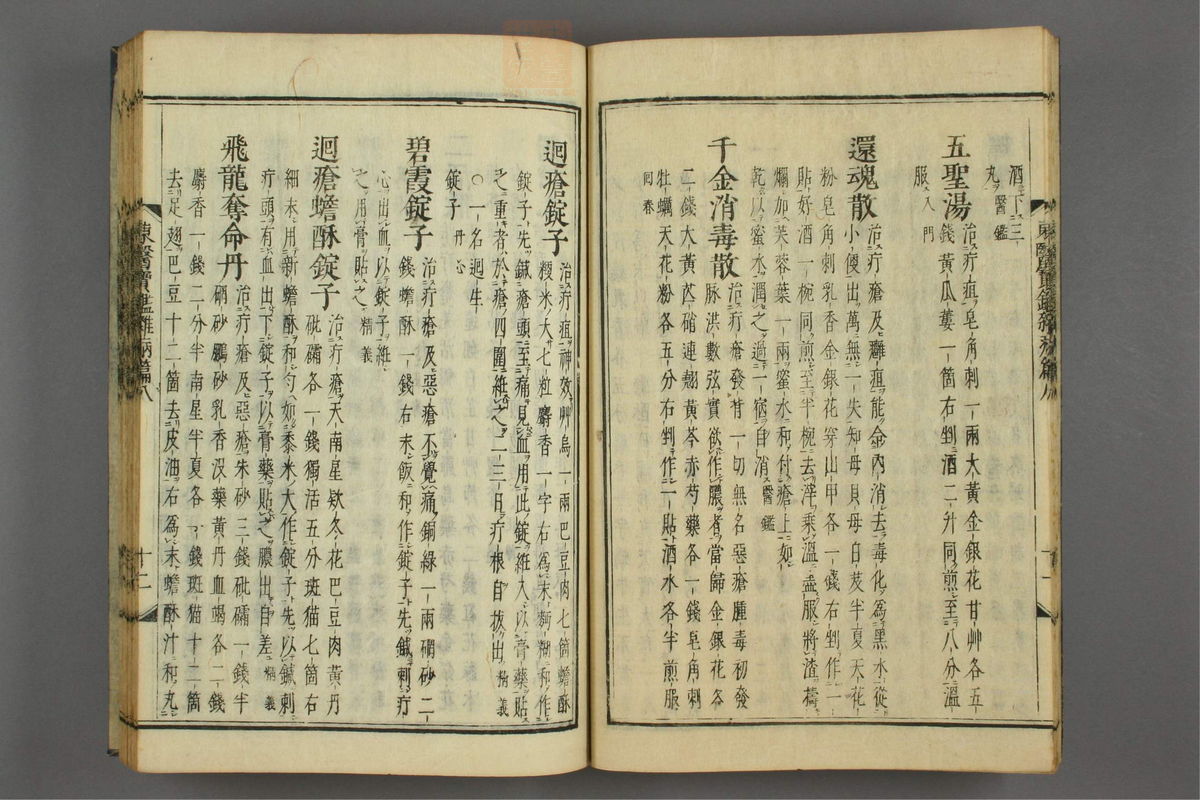 酒下三
丸醫鑑
五聖湯治疔疽皂角刺一兩大黃金銀花甘艸各五
錢黃瓜蔞一箇右剉酒二升同煎至八分溫
服入門
還魂散治疔瘡及癰疽能令內消去毒化爲黑水從
小便出萬無一失知母貝母白芨半夏天花
粉皂角刺乳香金銀花穿山甲各一錢右剉作一
貼好酒一椀同煎至半椀去滓乘溫盡服將渣擣
爛加芙蓉葉一兩蜜水和付瘡上如
乾以蜜水潤之過一宿自消醫鑑
千金消毒散治疔瘡發背一切無名惡瘡腫毒初發
脉洪數弦實欲作膿者當歸金銀花各
二錢大黃芒硝連翹黃芩赤芍藥各一錢皂角刺
牡蠣天花粉各五分右剉作一貼酒水各半煎服
回春
東醫寶鑑雜病篇八
十一
迴瘡錠子治疔疽神效艸烏一兩巴豆肉七箇蟾酥
糭米大七粒麝香一字右爲末麪糊和作
錠子先鍼瘡頭至痛見血用此錠紝入以膏藥貼
之重者於瘡四圍紝之二三日疔根自拔出精義
○一名迴生
錠子丹心
碧霞錠子治疔瘡及惡瘡不覺痛銅綠一兩硇砂二
錢蟾酥一錢右末飯和作錠子先鍼刺疔
心出血以錠子紝
之用膏貼之精義
迴瘡蟾酥錠子治疔瘡天南星欵冬花巴豆肉黃丹
砒礵各一錢獨活五分斑猫七箇右
細末用新蟾酥和勻如黍米大作錠子先以鍼刺
疔頭有血出下錠子以膏藥貼之膿出自差精義
飛龍奪命丹治疔瘡及惡瘡朱砂三錢砒礵一錢半
硇砂鵬砂乳香沒藥黃丹血竭各二錢
麝香一錢二分半南星半夏各一錢斑猫十二箇
去足翅巴豆十二箇去皮油右爲末蟾酥汁和丸
東醫寶鑑雜病篇八
十二